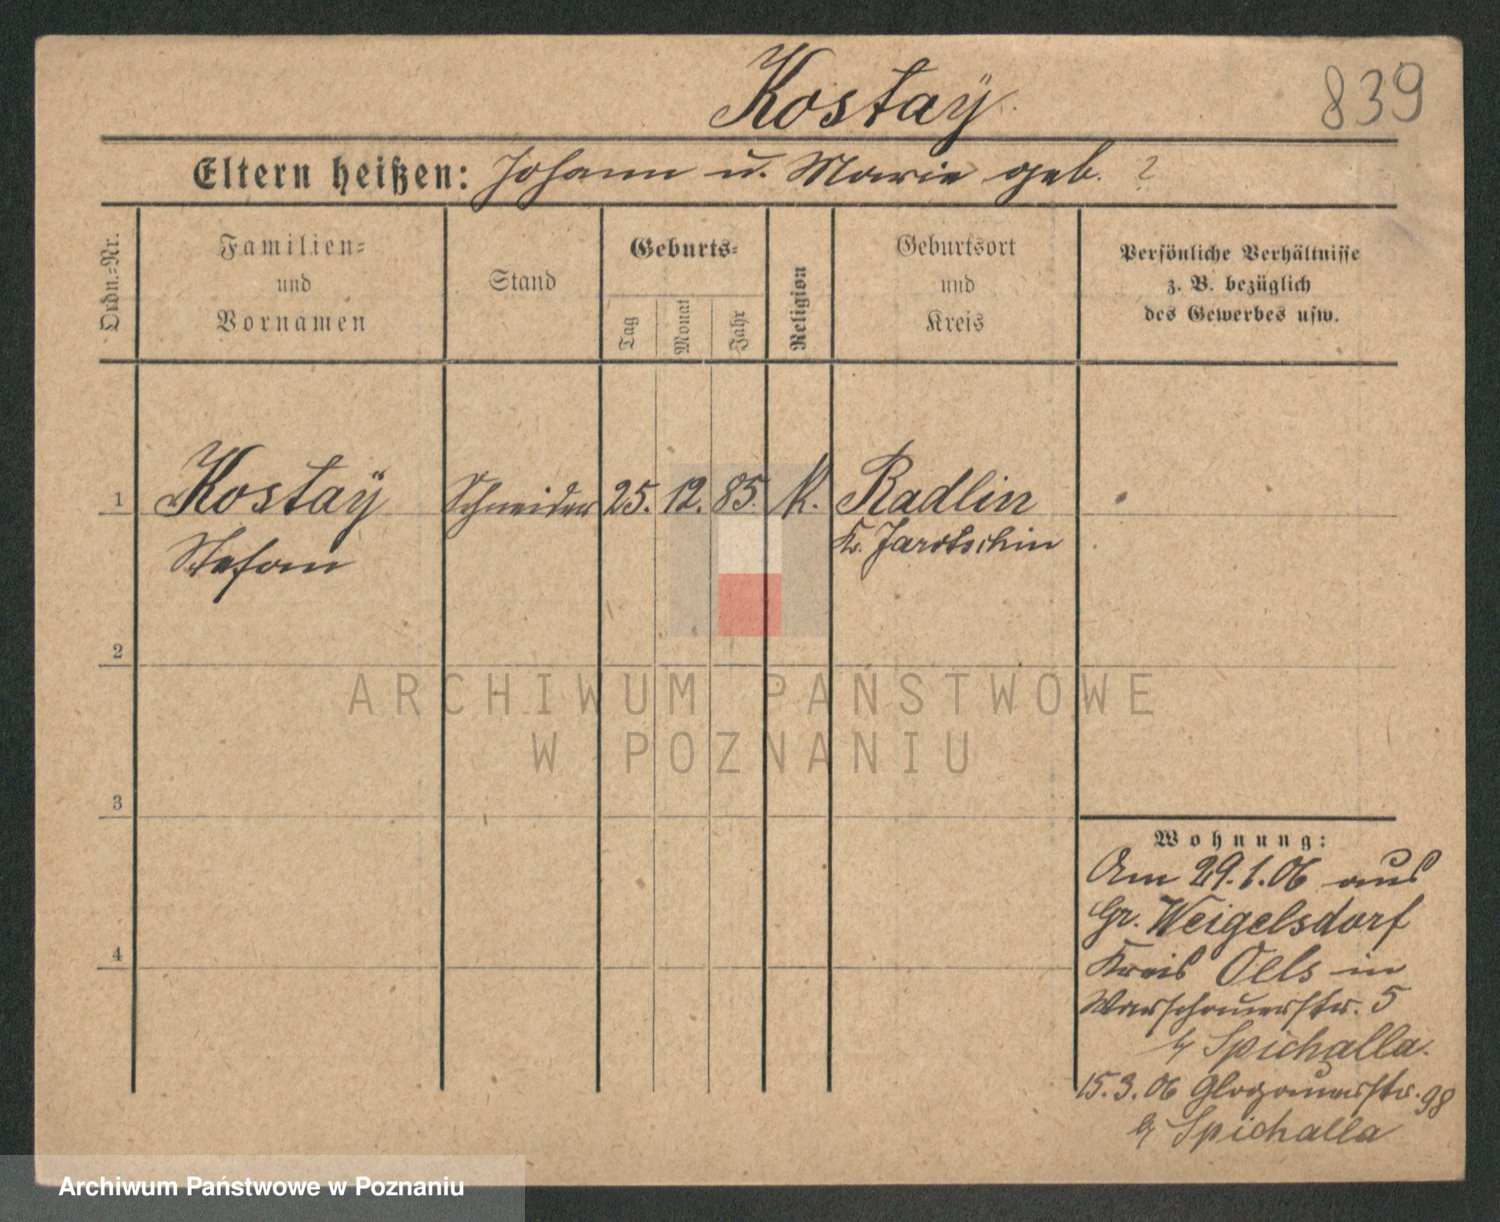 Kostaÿ
839
Eltern heißen: Johann u. Marie geb. ?
Ordn.=Nr.
Familien=
und
Vornamen
Stand
Geburts=
Tag
Monat
Jahr
Religion
Geburtsort
und
Kreis
Persönliche Verhältnisse
z. B. bezüglich
des Gewerbes usw.
1 Kostaÿ Schneider 25. 12. 85. K. Radlin
Stefan Kr. Jarotschin
2
3
4
Wohnung:
Am 29.1.06 aus
Gr. Weigelsdorf
Kreis Oels in
Warschauerstr. 5
b/ Spichalla.
15.3.06 Glogauerstr. 98
b/ Spichalla
ARCHIWUM PAŃSTWOWE
W POZNANIU
Archiwum Państwowe w Poznaniu